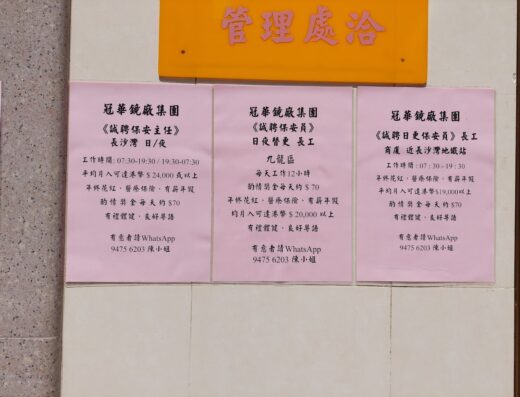 管理處洽
冠華鏡廠集團
《誠聘保安主任》
長沙灣 日/夜
工作時間: 07:30-19:30 / 19:30-07:30
平均月入可達港幣 $ 24,000 或以上
年終花紅、醫療保險、有薪年假
酌情獎金每天約 $70
有禮體健、良好粵語
有意者請WhatsApp
9475 6203 陳小姐
冠華鏡廠集團
《誠聘保安員》
日夜替更 長工
九龍區
每天工作12小時
酌情獎金每天約 $ 70
年終花紅、醫療保險、有薪年假
均月入可達港幣 $ 20,000 以上
有禮體健、良好粵語
有意者請WhatsApp
9475 6203 陳小姐
冠華鏡廠集團
《誠聘日更保安員》長工
商廈 近長沙灣地鐵站
工作時間 : 07 : 30 - 19 : 30
平均月入可達港幣$19,000以上
年終花紅、醫療保險、有薪年假
酌情獎金每天約 $70
有禮體健、良好粵語
有意者請WhatsApp
9475 6203 陳小姐